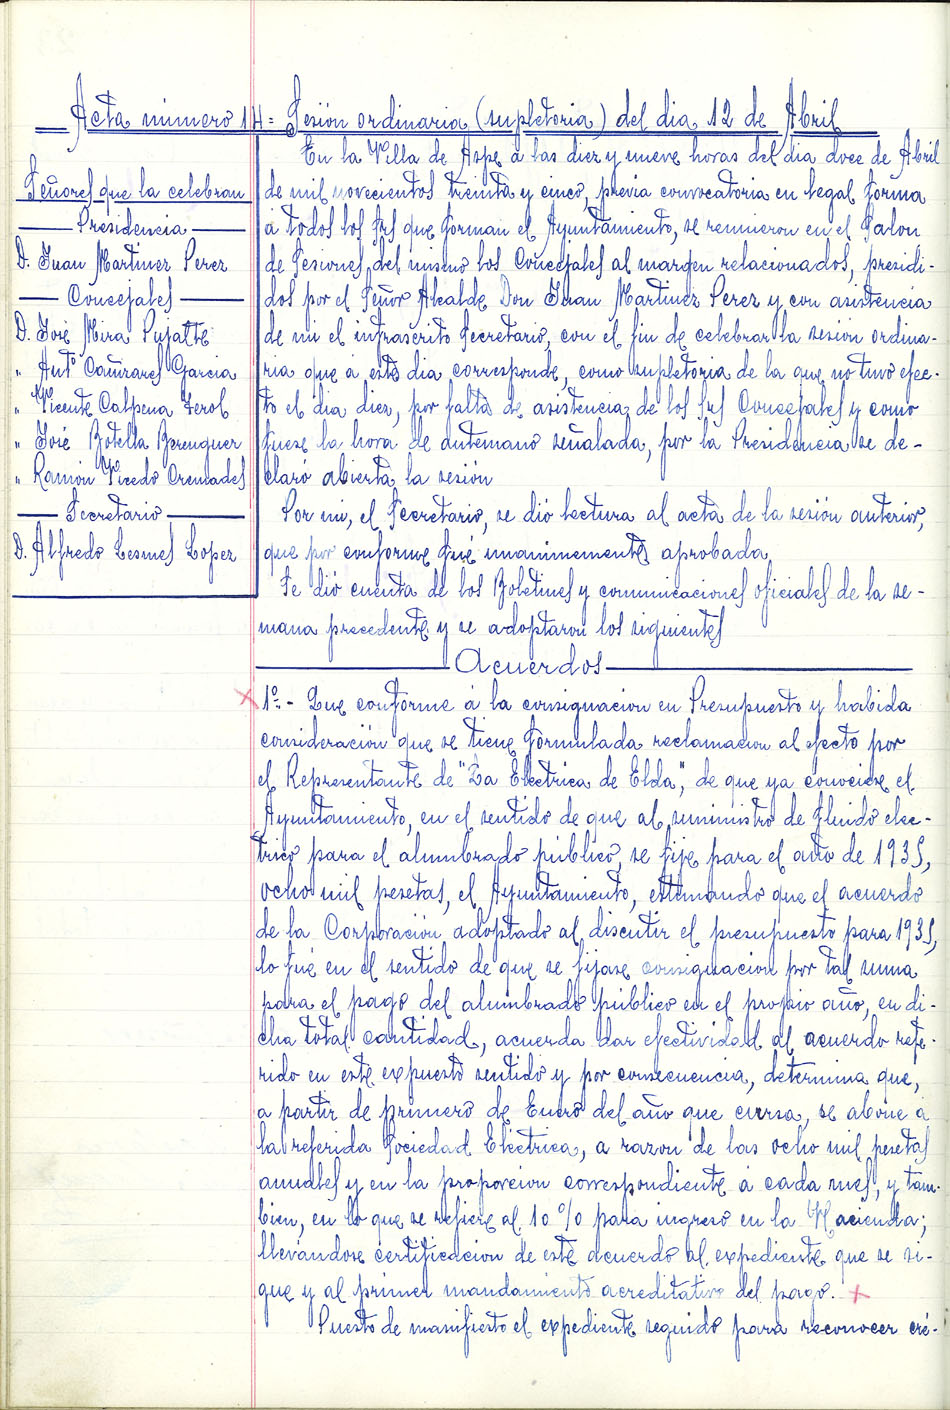 Acta número 14 = Sesión ordinaria (supletoria) del dia 12 de Abril
Señores que la celebran
Presidencia
D. Juan Martinez Perez
Concejales
D. José Mira Pujalte
" Antº Cañizares Garcia
" Vicente Calpena Cerol
" José Botella Berenguer
" Ramón Vicedo Cremades
Secretario
D. Alfredo Lesmes Lopez
En la Villa de Aspe a las diez y nueve horas del dia doce de Abril
de mil novecientos treinta y cinco, previa convocatoria en legal forma
a todos los Srs que forman el Ayuntamiento, se reunieron en el Salon
de Sesiones del mismo los Concejales al margen relacionados, presidi-
dos por el Señor Alcalde Don Juan Martinez Perez y con asistencia
de mi el infrascrito Secretario, con el fin de celebrar la sesión ordina-
ria que a este dia corresponde, como supletoria de la que no tuvo efec-
to el dia diez, por falta de asistencia de los Srs Concejales y como
fuese la hora de antemano señalada, por la Presidencia se de-
claró abierta la sesión
Por mi, el Secretario, se dió lectura al acta de la sesión anterior,
que por conforme fué unanimemente aprobada
Se dió cuenta de los Boletines y comunicaciones oficiales de la se-
mana precedente y se adoptaron los siguientes
Acuerdos
1º.- Que conforme á la consignacion en Presupuesto y habida
consideración que se tiene formulada reclamacion al efecto por
el Representante de "La Electrica de Elda", de que ya conociese el
Ayuntamiento, en el sentido de que al suministro de fluido elec-
trico para el alumbrado público, se fije para el año de 1935,
ocho mil pesetas, el Ayuntamiento, estimando que el acuerdo
de la Corporación adoptado al discutir el presupuesto para 1935,
lo fué en el sentido de que se fijase consignacion por tal suma
para el pago del alumbrado público en el propio año, en di-
cha total cantidad, acuerda dar efectividad al acuerdo refe-
rido en este expuesto sentido y por consecuencia, determina que,
a partir de primero de Enero del año que cursa, se abone a
la referida Sociedad Electrica, a razon de las ocho mil pesetas
anuales y en la proporcion correspondiente á cada mes, y tam-
bien, en lo que se refiere al 10 % para ingreso en la Hacienda;
llevándose certificacion de este acuerdo al expediente que se si-
gue y al primer mandamiento acreditativo del pago.
Puesto de manifiesto el expediente seguido para reconocer cré-